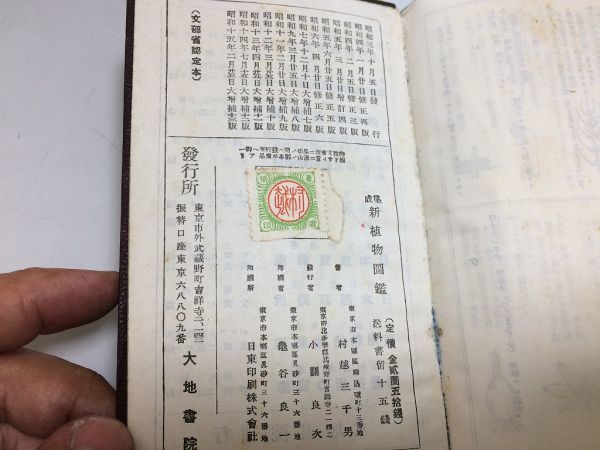 昭和三年十月五日發行
昭和四年一月廿日修正再版
昭和四年二月廿日修正三版
昭和五年三月廿日增訂四版
昭和五年六月廿五日修正五版
昭和六年四月廿日修正六版
昭和七年十二月十日大增補七版
昭和九年三月廿五日大增補八版
昭和十一年二月廿日大增補九版
昭和十二年三月廿日大增補十版
昭和十三年四月廿日大增補十一版
昭和十四年七月廿日大增補十二版
昭和十五年二月廿日大增補十三版
(文部省認定本)
集成 新植物圖鑑
(定價 金貳圓五拾錢)
送料書留十五錢
著者
東京市本鄕區駒込
村越三千男
發行者
小
良次
印刷者
東京市本鄕區眞砂町三十六番地
龜谷良一
印刷所
東京市本鄕區眞砂町三十六番地
日東印刷株式會社
村越
發行所
東京市外武藏野町吉祥寺
振替口座東京六八八〇九番
大地書院